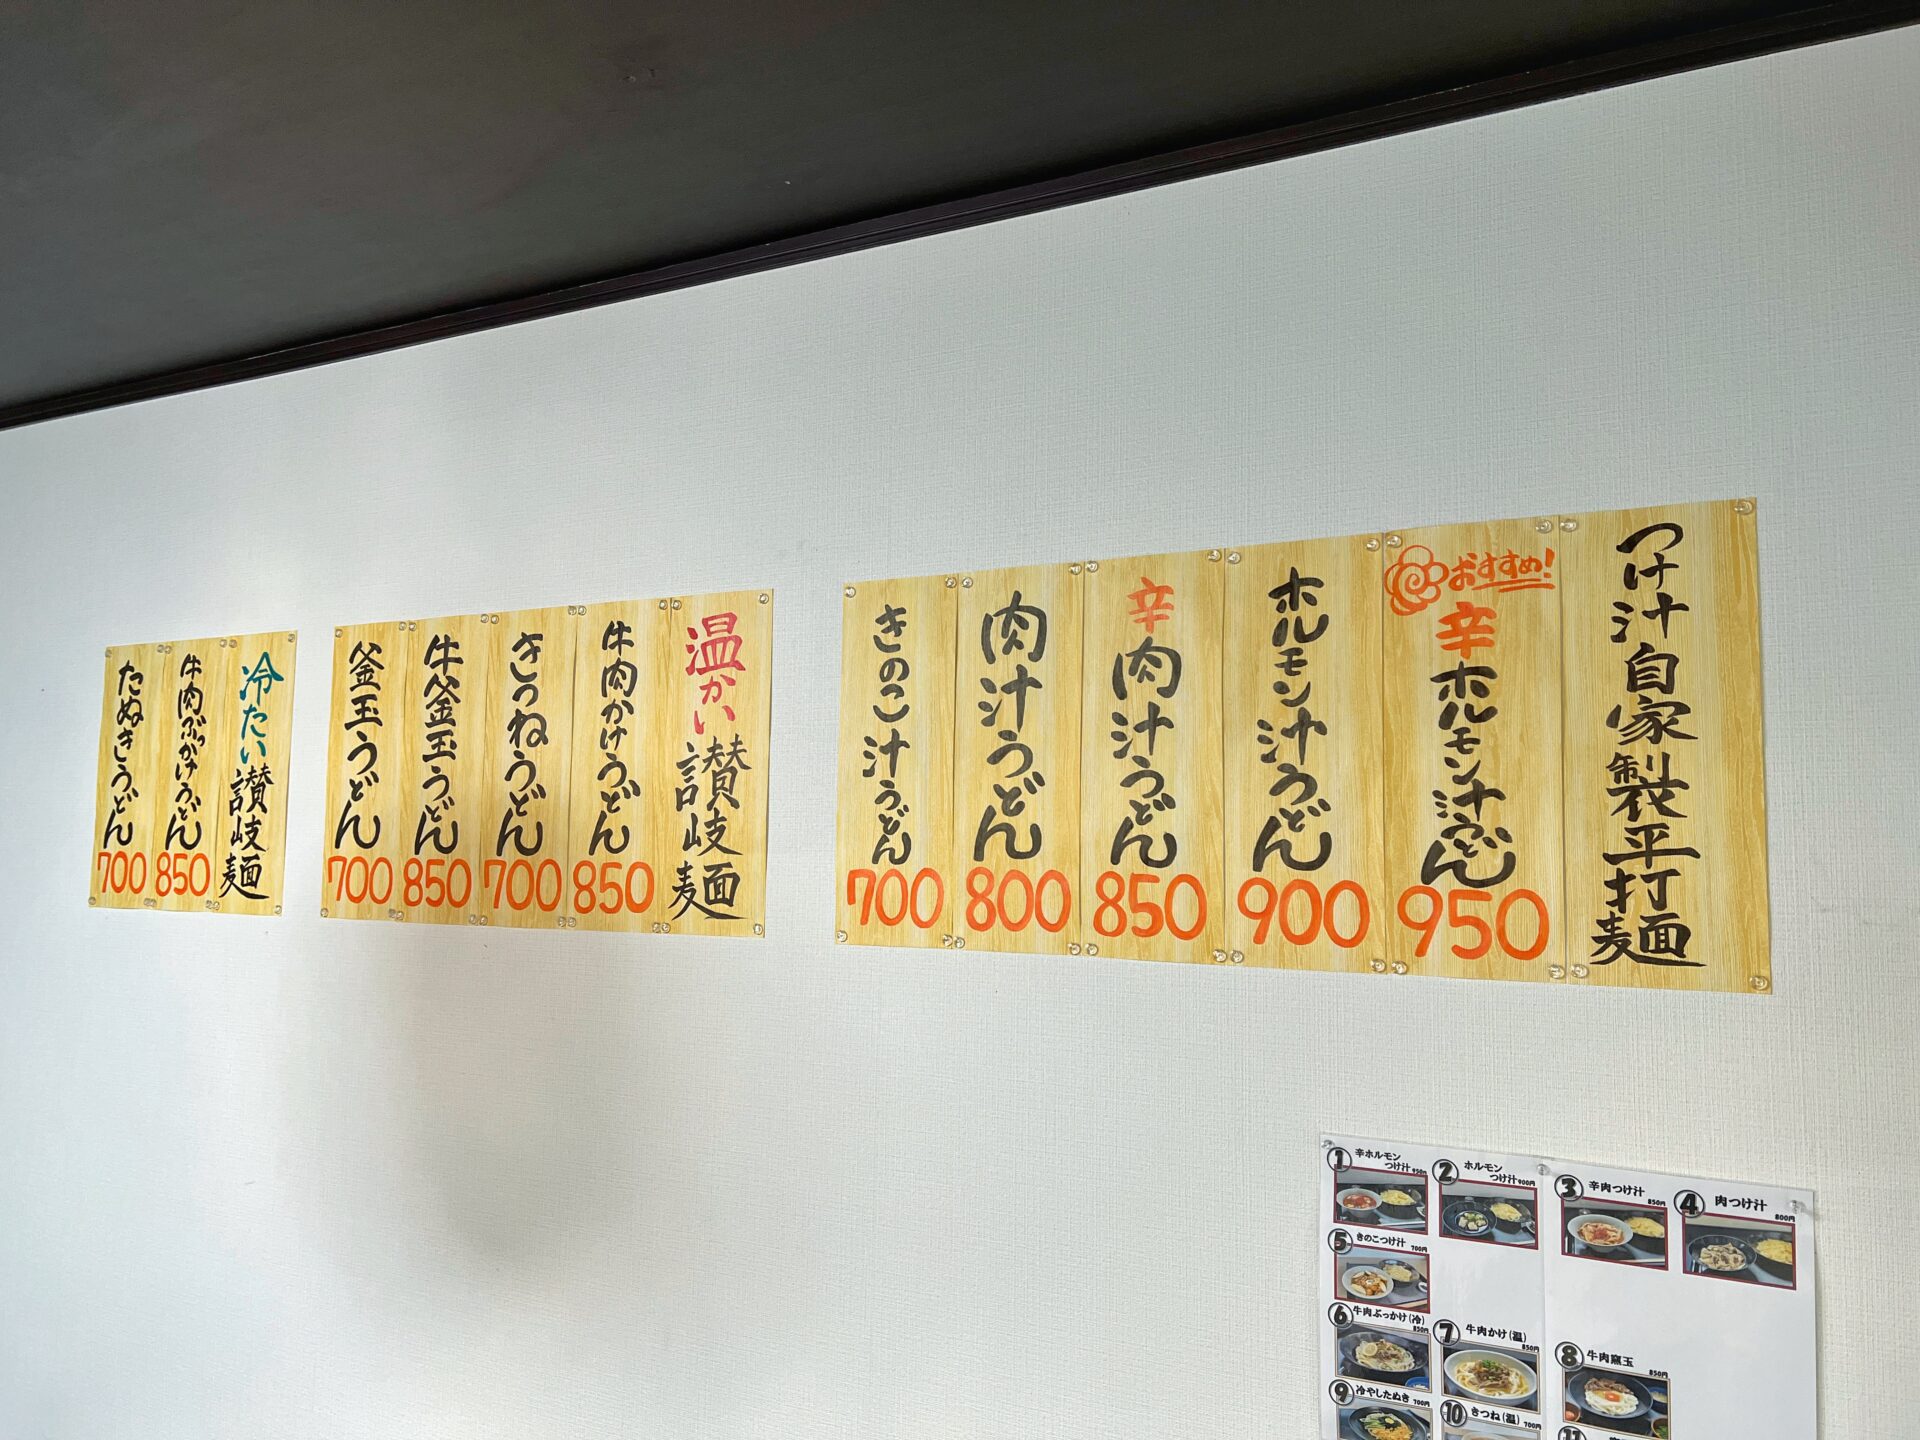 つけ汁自家製平打麺
おすすめ!
辛ホルモン汁うどん
950
ホルモン汁うどん
900
辛肉汁うどん
850
肉汁うどん
800
きのこ汁うどん
700
温かい讃岐麺
牛肉かけうどん
850
きつねうどん
700
牛釜玉うどん
850
釜玉うどん
700
冷たい讃岐麺
牛肉ぶっかけうどん
850
たぬきうどん
700
1 辛ホルモン
つけ汁 950円
2 ホルモン
つけ汁 900円
3 辛肉つけ汁
850円
4 肉つけ汁
800円
5 きのこつけ汁
700円
6 牛肉ぶっかけ(冷)
850円
7 牛肉かけ(温)
850円
8 牛肉窯玉
850円
9 冷やしたぬき
700円
10 きつね(温)
700円
11